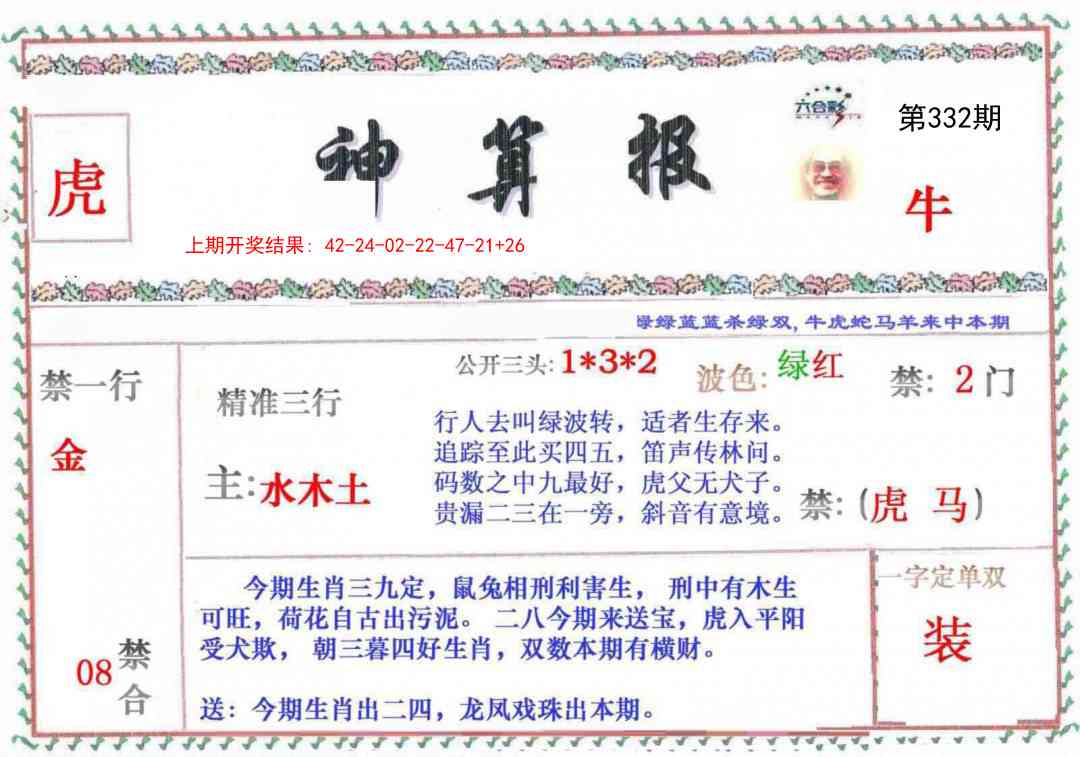 六合彩
第332期
虎
神算报
牛
上期开奖结果：42-24-02-22-47-21+26
绿绿蓝蓝杀绿双,牛虎蛇马羊来中本期
禁一行
金
精准三行
主:水木土
公开三头:1*3*2
波色:绿红
禁: 2门
行人去叫绿波转，适者生存来。
追踪至此买四五，笛声传林问。
码数之中九最好，虎父无犬子。
贵漏二三在一旁，斜音有意境。
禁:(虎 马)
今期生肖三九定，鼠兔相刑利害生， 刑中有木生
可旺，荷花自古出污泥。 二八今期来送宝，虎入平阳
受犬欺， 朝三暮四好生肖，双数本期有横财。
送：今期生肖出二四，龙凤戏珠出本期。
一字定单双
装
08禁合